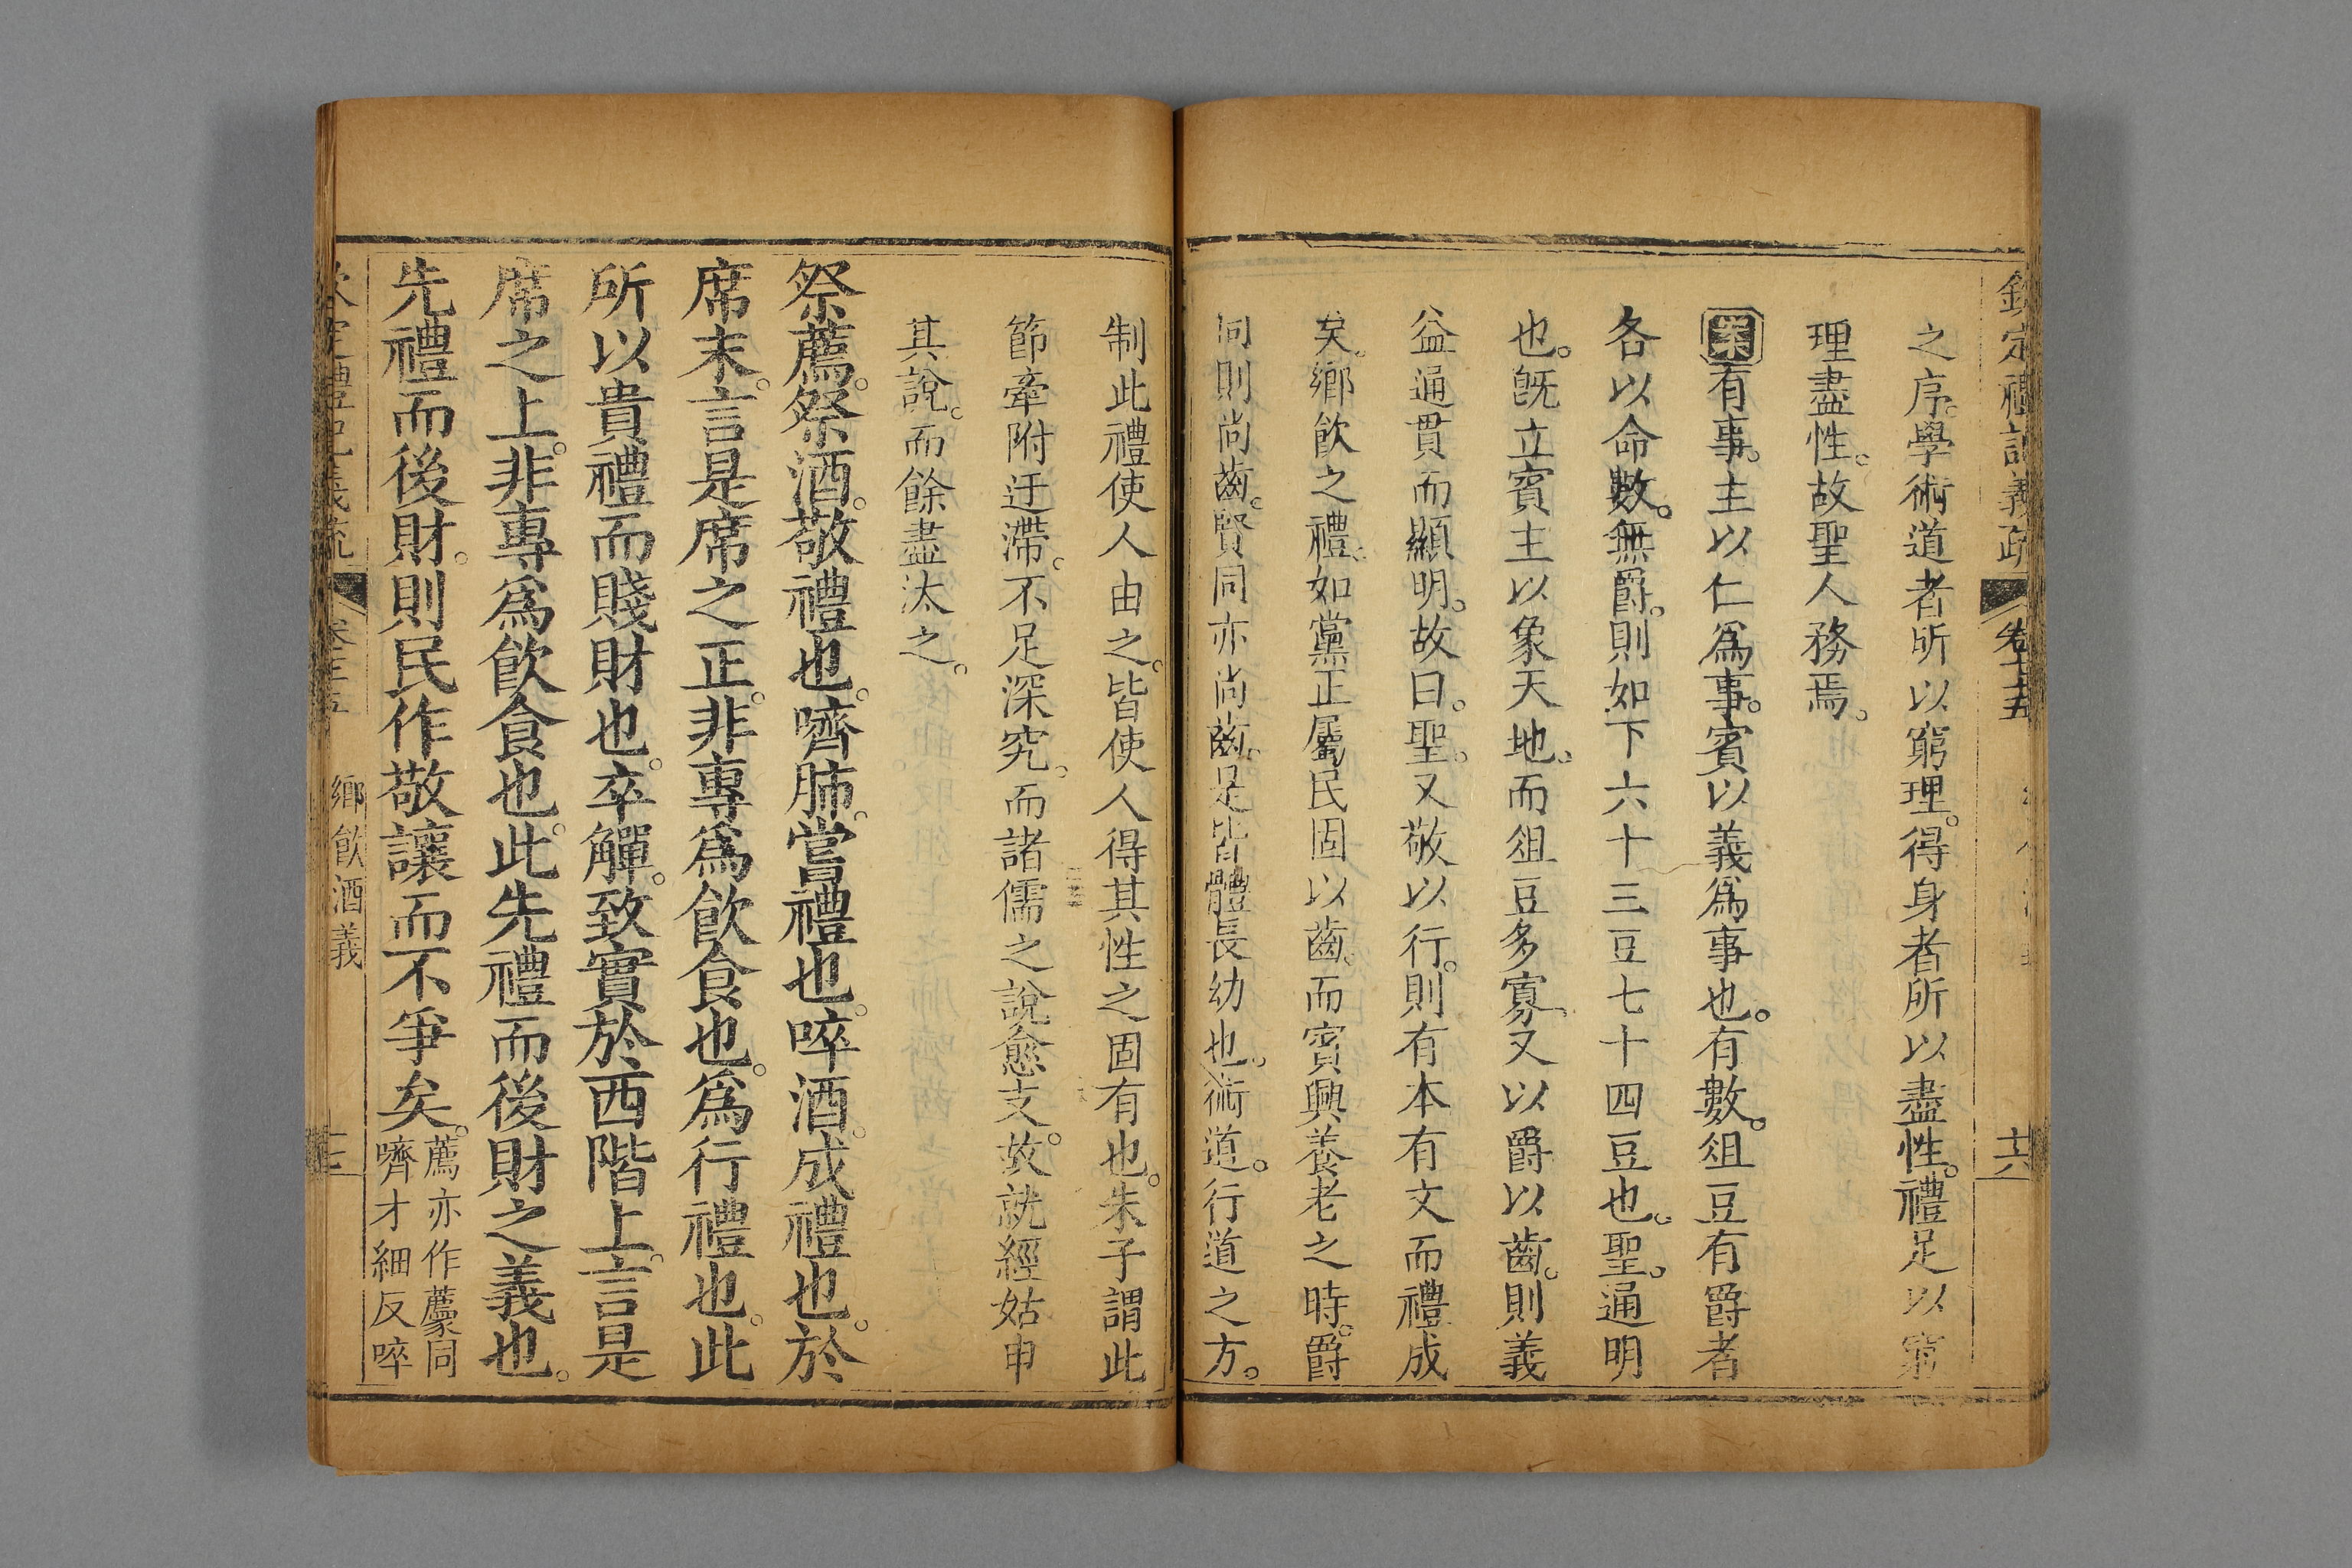 欽定禮記義疏 卷七十五 十六
之序。學術道者所以窮理。得身者所以盡性。禮足以窮
理盡性。故聖人務焉。
案有事。主以仁爲事。賓以義爲事也。有數。俎豆有爵者
各以命數。無爵。則如下六十三豆七十四豆也。聖。通明
也。旣立賓主以象天地。而俎豆多寡、又以爵以齒。則義
益通貫而顯明。故曰。聖。又敬以行。則有本有文而禮成
矣。鄉飮之禮、如黨正屬民固以齒。而賓興養老之時。爵
同則尚齒。賢同亦尚齒。是皆體長幼也。術道。行道之方。
制此禮使人由之。皆使人得其性之固有也。朱子謂此
節牽附迂滯。不足深究。而諸儒之說愈支。故就經姑申
其說。而餘盡汰之。
祭薦。祭酒。敬禮也。嚌肺。嘗禮也。啐酒。成禮也。於
席末。言是席之正。非專爲飮食也。爲行禮也。此
所以貴禮而賤財也。卒觶。致實於西階上。言是
席之上。非專爲飮食也。此先禮而後財之義也。
先禮而後財。則民作敬讓而不爭矣。薦亦作薦同
嚌才細反啐
鄉飮酒義